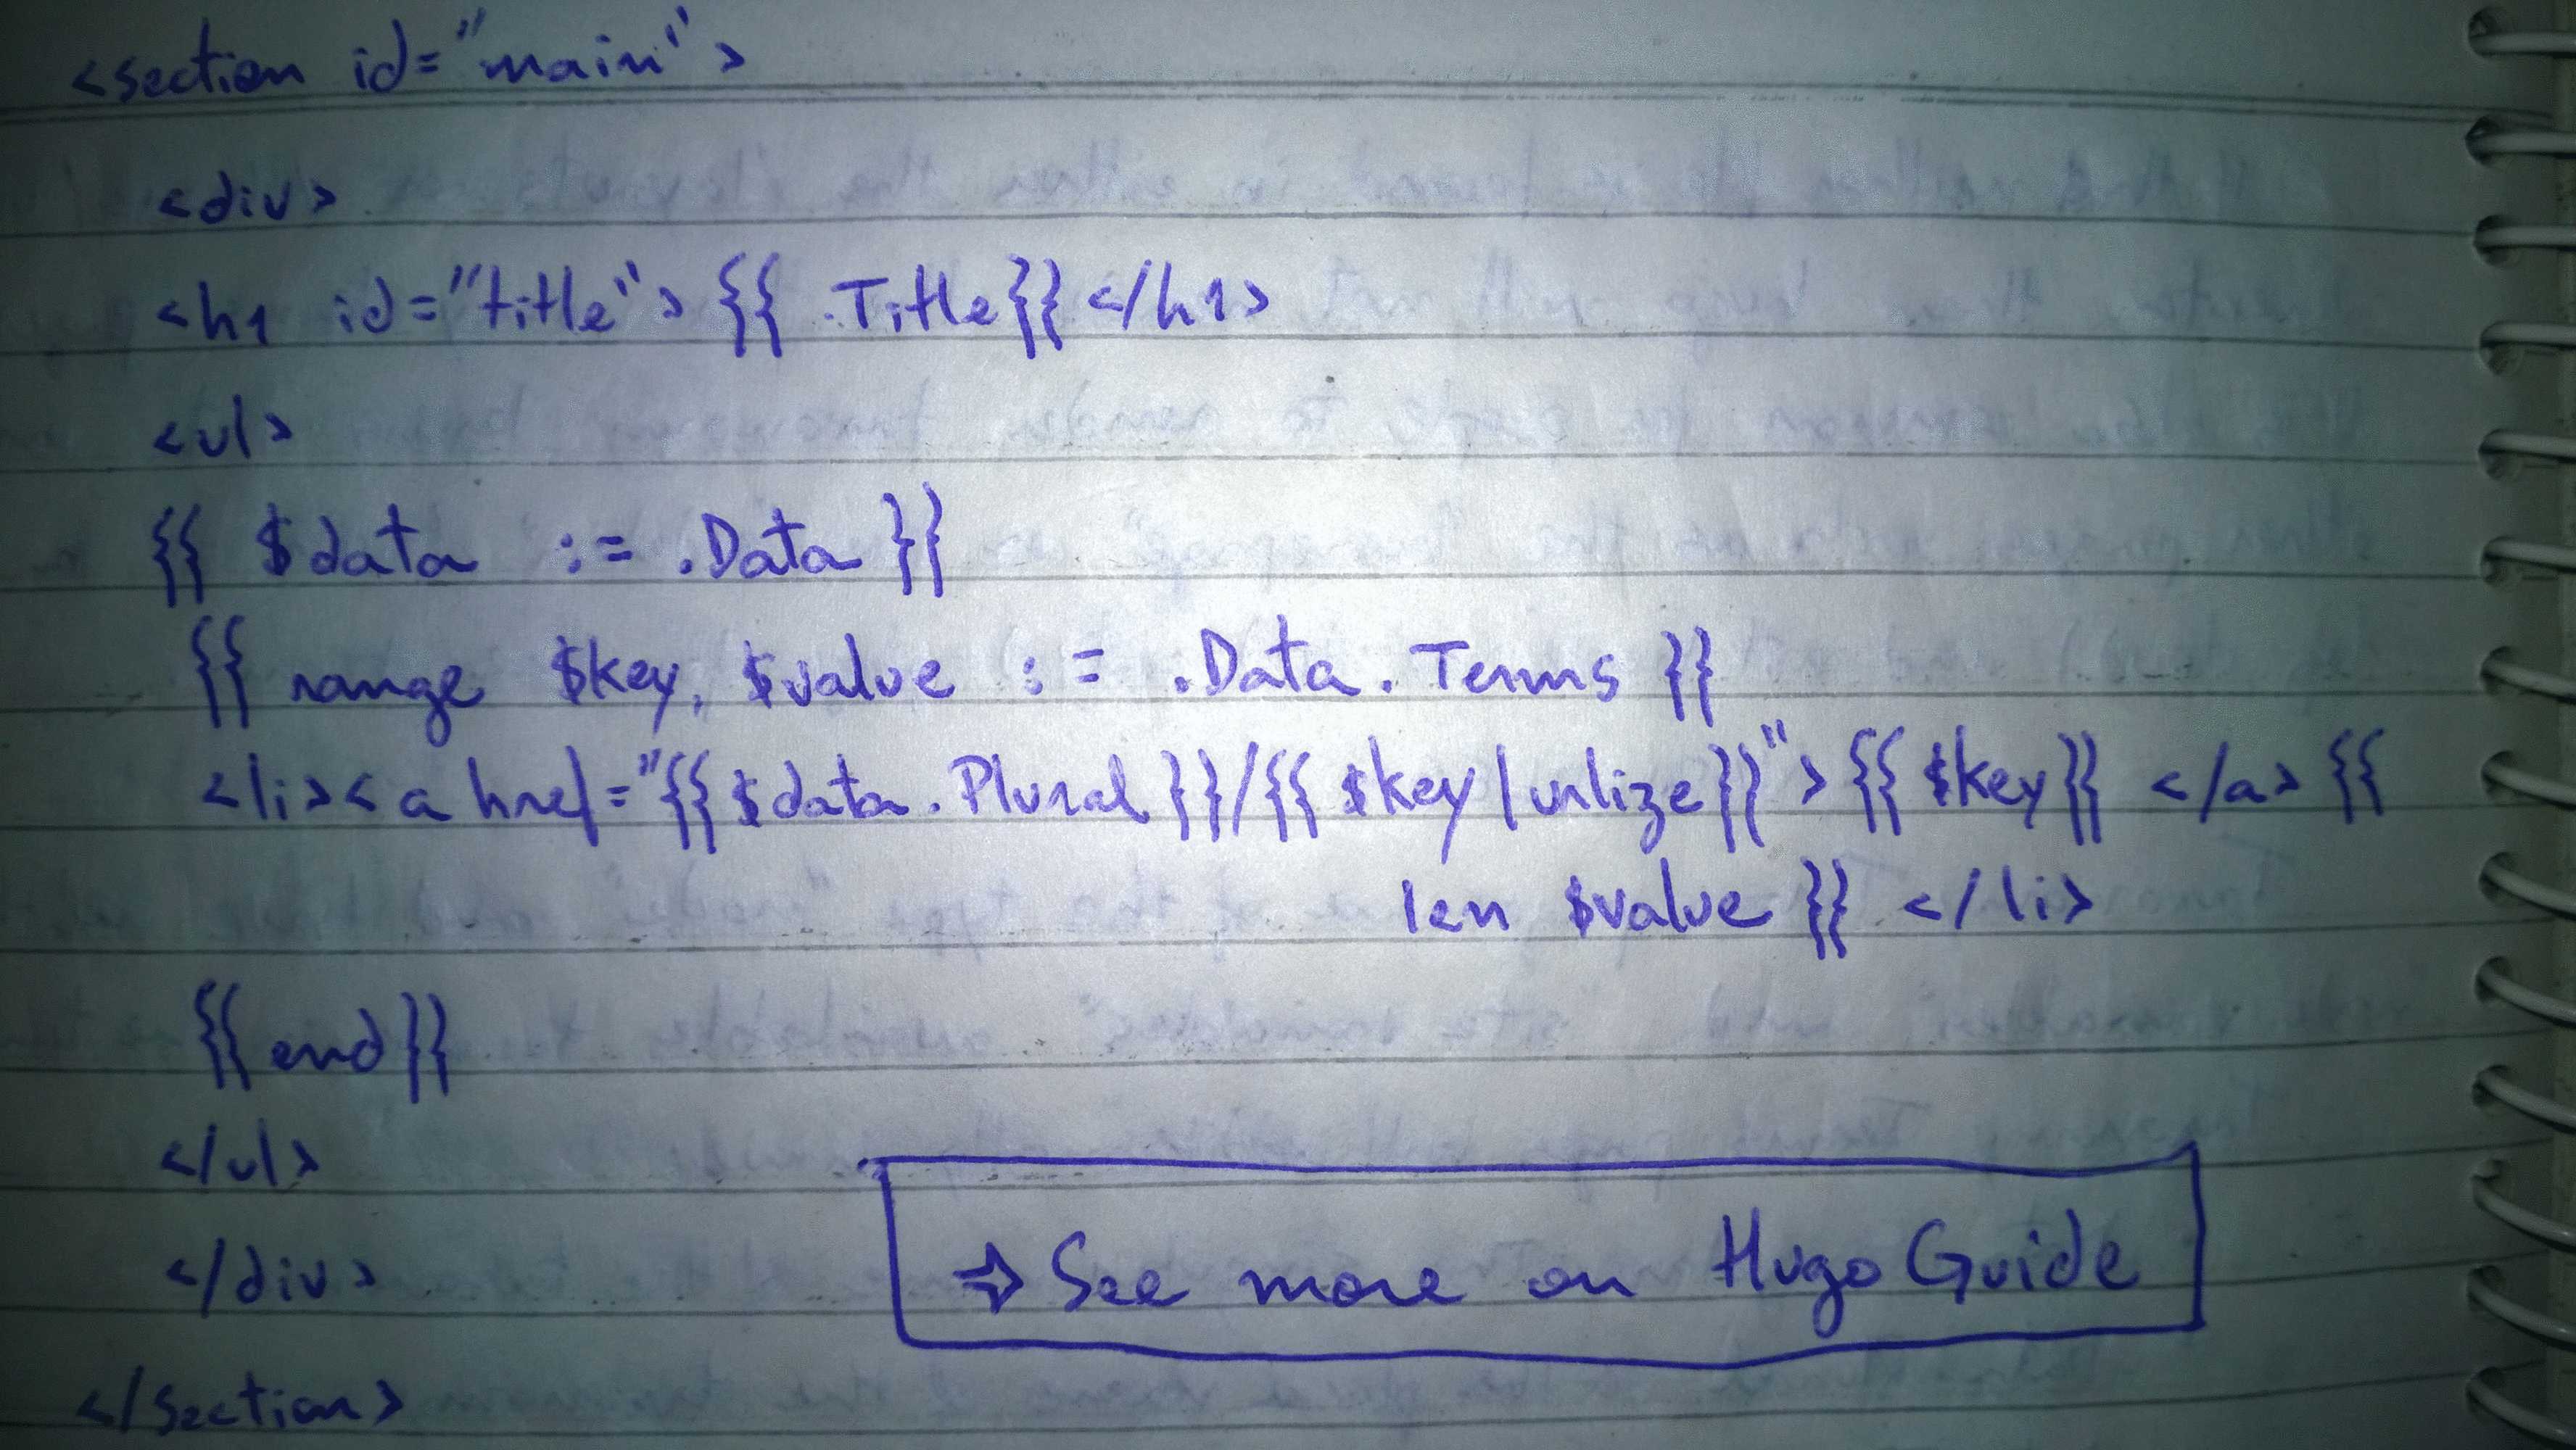 <section id="main">
<div>
<h1 id="title"> {{ .Title}}</h1>
<ul>
{{ $data := .Data }}
{{ range $key, $value := .Data.Terms }}
<li><a href="{{$data.Plural}}/{{ $key | urlize}}">{{ $key}} </a> {{
len $value }} </li>
{{end}}
</ul>
</div>
⇒ See more on Hugo Guide
</section>